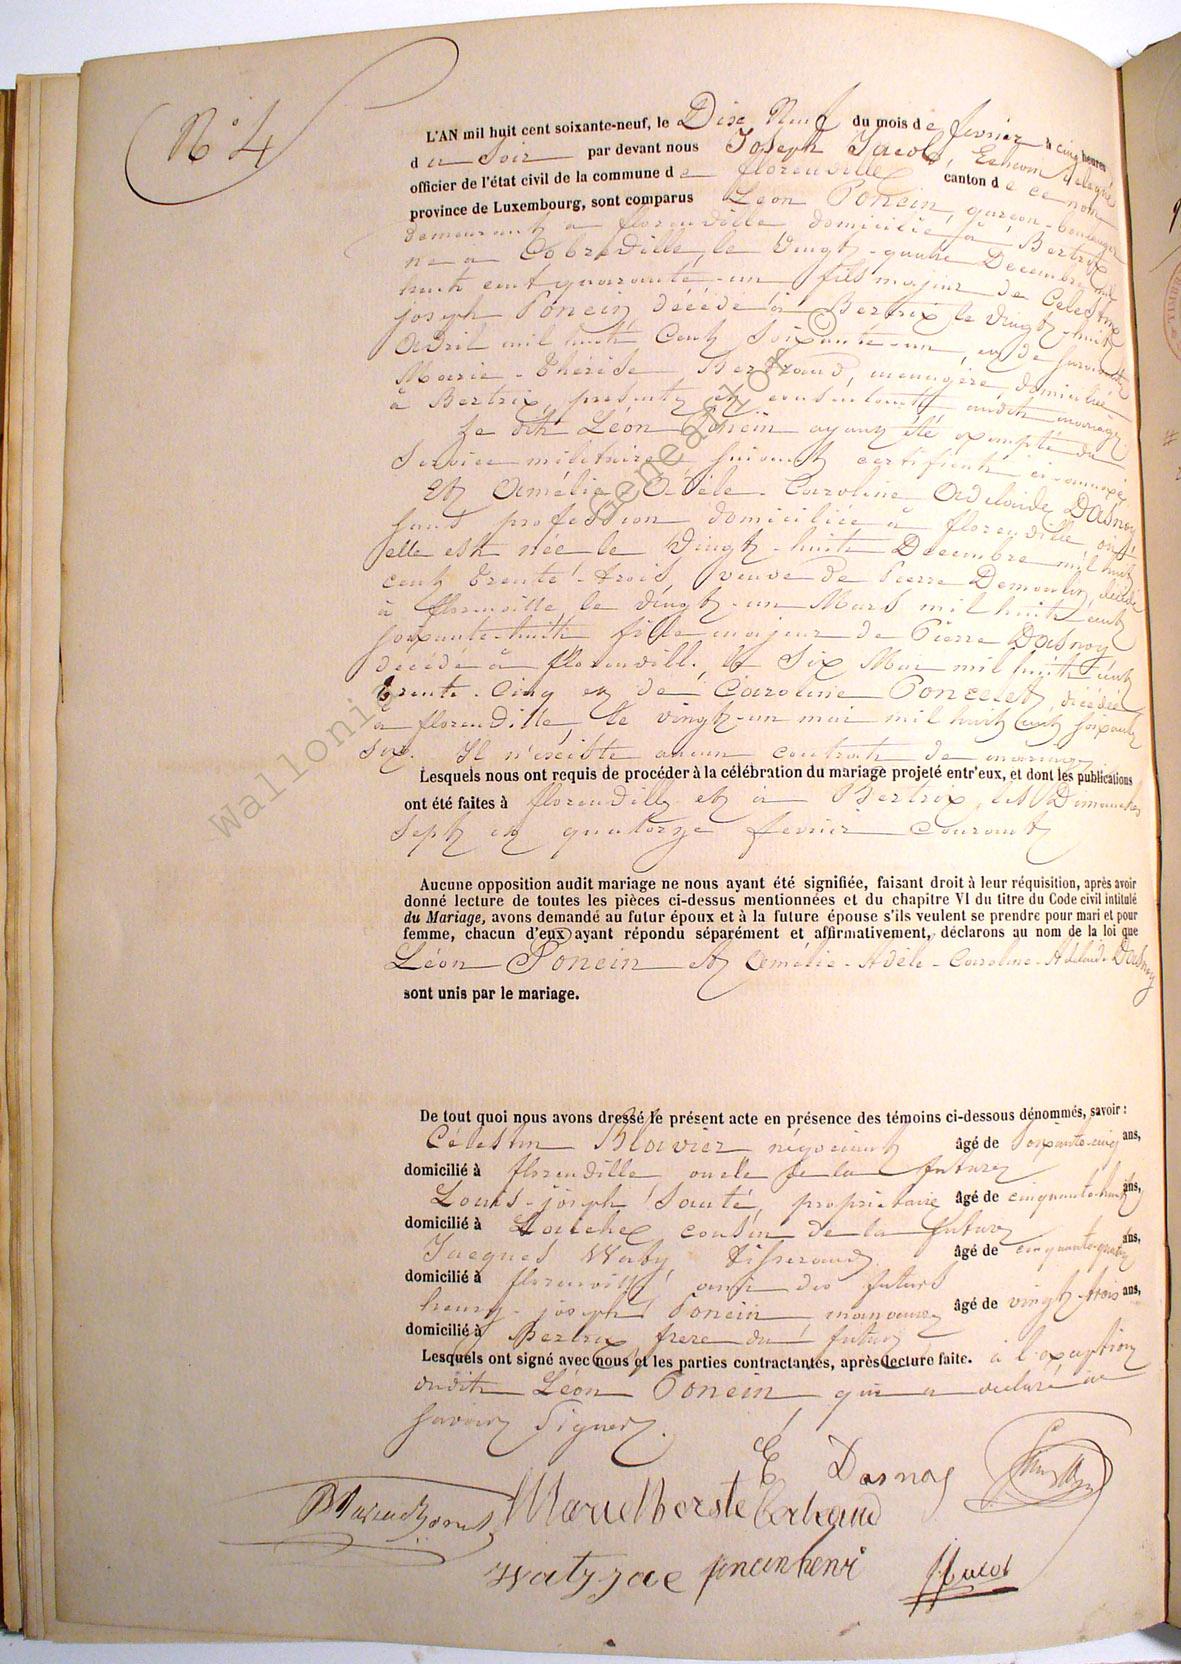 N° 4
L'AN mil huit cent soixante-neuf, le Dixe Neuf du mois de fevrier à cinq heures
du Soir par devant nous Joseph Jacob, Echevin délégué
officier de l'état civil de la commune de florenville canton de ce nom
province de Luxembourg, sont comparus Léon Poncin, garçon-boulanger
demeurant à florenville domicilié à Bertrix
né à le vingt-quatre Decembre mil
huit cent quarante-un fils majeur de Celestin
joseph Poncin décédé à Bertrix le vingt-huit
Avril mil huit Cent Soixante-un, et de
Marie-Thérèse Bertrand, ménagère, domiciliée
à Bertrix, présente et consentante audit mariage
Le dit Léon Poncin ayant été exempté du
Service militaire suivant certificat ci-annexé
Et Amélie-Adèle-Caroline Adelaide Dasnoy
sans profession domiciliée à florenville où
elle est née le Vingt-huit Decembre mil huit
cent trente-trois, veuve de Pierre Demoulin décédé
à florenville le vingt-un Mars mil huit cent
soixante-huit fille majeur de Pierre Dasnoy
décédé à florenvill. le Six Mai mil huit cent
trente-cinq et de Caroline Poncelet, décédée
à florenville, le vingt-un mai mil huit cent soixante
six. Il n'existe aucun contrat de mariage
Lesquels nous ont requis de procéder à la célébration du mariage projeté entr'eux, et dont les publications
ont été faites à florenville et à Bertrix, les Dimanches
Sept et quatorze fevrier courant
Aucune opposition audit mariage ne nous ayant été signifiée, faisant droit à leur réquisition, après avoir
donné lecture de toutes les pièces ci-dessus mentionnées et du chapitre VI du titre du Code civil intitulé
du Mariage, avons demandé au futur époux et à la future épouse s'ils veulent se prendre pour mari et pour
femme, chacun d'eux ayant répondu séparément et affirmativement, déclarons au nom de la loi que
Léon Poncin et Amélie-Adèle-Caroline-Adelaide Dasnoy
sont unis par le mariage.
De tout quoi nous avons dressé le présent acte en présence des témoins ci-dessous dénommés, savoir :
Célestin Blavier négociant âgé de soixante-cinq ans,
domicilié à florenville oncle de la future
Louis-joseph Santé, propriétaire âgé de cinquante-huit ans,
domicilié à cousin de la future
Jacques Waty, tisserand âgé de cinquante-quatre ans,
domicilié à florenville ami des futurs
henry-joseph Poncin manoeuvre âgé de vingt-trois ans,
domicilié à Bertrix frère du futur
Lesquels ont signé avec nous et les parties contractantes, après lecture faite. à l'exception
dudit Léon Poncin, qui a déclaré ne
savoir Signer.
Dasnoy
Bertrand
poncin henri
J Jacob
Wallonie
Geneanet.org ©